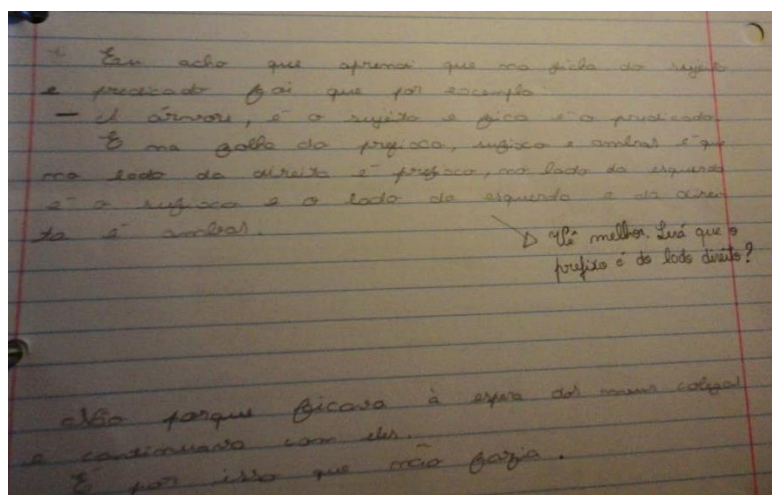 Eu acho que aprendi que na ficha do sujeito
e predicado foi que por escemplo
— A árvore, é o sujeito e fica é o predicado.
E na folha do prefisco, sufisco e ambas é que
no lado da direita é prefisco, no lado da esquerda
é o sufisco e o lado da esquerda e da direi-
ta é ambas.
Vê melhor. Será que o
prefixo é do lado direito?
Não porque ficava à espera dos meus colegas
e continuava com eles.
E por isso que não fazia.